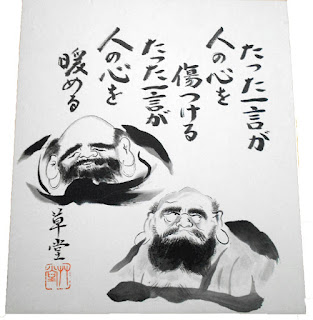 たった一言が
人の心を
傷つける
たった一言が
人の心を
暖める
草堂